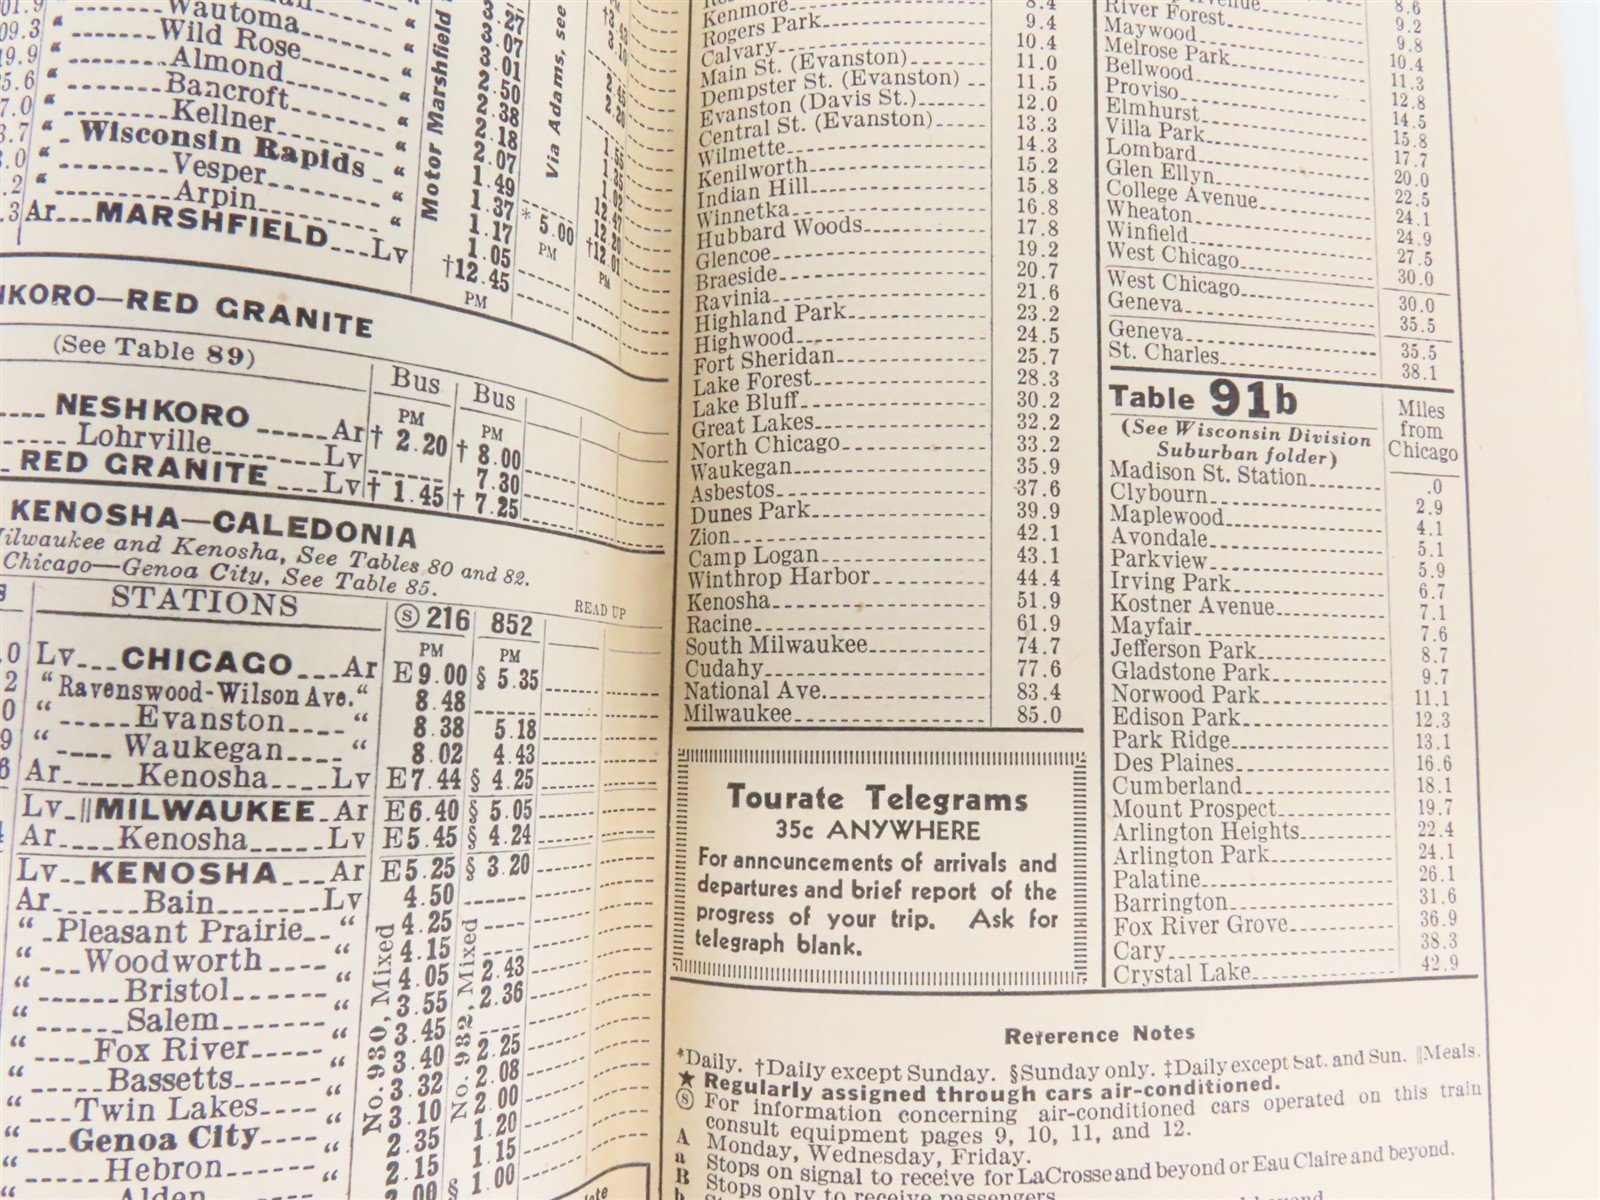 Wautoma
Wild Rose
Almond
Bancroft
Kellner
Wisconsin Rapids
Vesper
Arpin
Ar MARSHFIELD Lv
Motor Marshfield
3.27
3.07
3.01
2.50
2.38
2.18
2.07
1.49
1.37
1.17
1.05
†12.45
PM
Via Adams, see
* 5.00
PM
†12.01
PM
KORO—RED GRANITE
(See Table 89)
Bus Bus
PM PM
NESHKORO Ar † 2.20 † 8.00
Lohrville Lv 7.30
RED GRANITE Lv † 1.45 † 7.25
KENOSHA—CALEDONIA
Milwaukee and Kenosha, See Tables 80 and 82.
Chicago—Genoa City, See Table 85.
READ UP
STATIONS Ⓢ 216 852
PM PM
Lv CHICAGO Ar E 9.00 § 5.35
" Ravenswood-Wilson Ave. " 8.48
" Evanston " 8.38 5.18
" Waukegan " 8.02 4.43
Ar Kenosha Lv E 7.44 § 4.25
Lv ‖MILWAUKEE Ar E 6.40 § 5.05
Ar Kenosha Lv E 5.45 § 4.24
Lv KENOSHA Ar E 5.25 § 3.20
Ar Bain Lv 4.50
" Pleasant Prairie " 4.25
" Woodworth " 4.15
" Bristol " 4.05 2.43
" Salem " 3.55 2.36
" Fox River " 3.45
" Bassetts " 3.40 2.25
" Twin Lakes " 3.32 2.08
" Genoa City " 3.10 2.00
" Hebron " 2.35 1.20
Alden 2.15 1.15
2.00 § 1.00
No. 930, Mixed
No. 932, Mixed
Kenmore 8.4
Rogers Park 9.4
Calvary 10.4
Main St. (Evanston) 11.0
Dempster St. (Evanston) 11.5
Evanston (Davis St.) 12.0
Central St. (Evanston) 13.3
Wilmette 14.3
Kenilworth 15.2
Indian Hill 15.8
Winnetka 16.8
Hubbard Woods 17.8
Glencoe 19.2
Braeside 20.7
Ravinia 21.6
Highland Park 23.2
Highwood 24.5
Fort Sheridan 25.7
Lake Forest 28.3
Lake Bluff 30.2
Great Lakes 32.2
North Chicago 33.2
Waukegan 35.9
Asbestos 37.6
Dunes Park 39.9
Zion 42.1
Camp Logan 43.1
Winthrop Harbor 44.4
Kenosha 51.9
Racine 61.9
South Milwaukee 74.7
Cudahy 77.6
National Ave. 83.4
Milwaukee 85.0
Tourate Telegrams
35c ANYWHERE
For announcements of arrivals and
departures and brief report of the
progress of your trip. Ask for
telegraph blank.
8.6
River Forest 9.2
Maywood 9.8
Melrose Park 10.4
Bellwood 11.3
Proviso 12.8
Elmhurst 14.5
Villa Park 15.8
Lombard 17.7
Glen Ellyn 20.0
College Avenue 22.5
Wheaton 24.1
Winfield 24.9
West Chicago 27.5
30.0
West Chicago 30.0
Geneva 35.5
Geneva 35.5
St. Charles 38.1
Table 91b
(See Wisconsin Division
Suburban folder)
Miles
from
Chicago
Madison St. Station .0
Clybourn 2.9
Maplewood 4.1
Avondale 5.1
Parkview 5.9
Irving Park 6.7
Kostner Avenue 7.1
Mayfair 7.6
Jefferson Park 8.7
Gladstone Park 9.7
Norwood Park 11.1
Edison Park 12.3
Park Ridge 13.1
Des Plaines 16.6
Cumberland 18.1
Mount Prospect 19.7
Arlington Heights 22.4
Arlington Park 24.1
Palatine 26.1
Barrington 31.6
Fox River Grove 36.9
Cary 38.3
Crystal Lake 42.9
Reference Notes
*Daily. †Daily except Sunday. §Sunday only. ‡Daily except Sat. and Sun. ‖Meals.
★ Regularly assigned through cars air-conditioned.
Ⓢ For information concerning air-conditioned cars operated on this train
consult equipment pages 9, 10, 11, and 12.
A Monday, Wednesday, Friday.
a Stops on signal to receive for LaCrosse and beyond or Eau Claire and beyond.
B Stops only to receive passengers